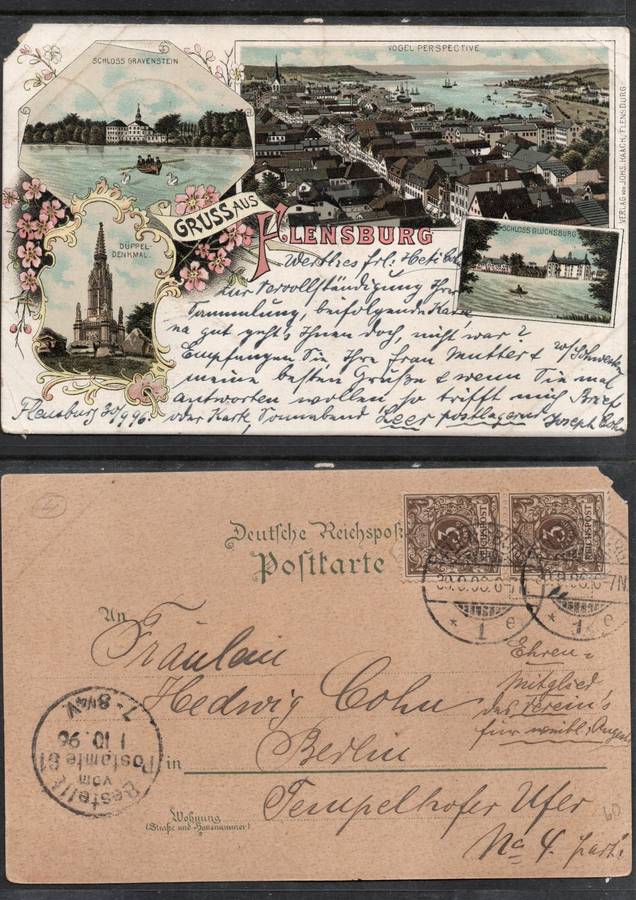 SCHLOSS GRAVENSTEIN
VOGEL PERSPECTIVE
VERLAG VON JOHS. HAACH, FLENSBURG
DÜPPEL-
DENKMAL.
GRUSS AUS
FLENSBURG
SCHLOSS GLÜCKSBURG
Werthes Frl. Hedi Cohn
Zur Vervollständigung Ihrer
Sammlung, beifolgende Karte,
na gut geht's Ihnen doch, nicht war?
Empfangen Sie, Ihre Frau Mutter &
meine besten Grüße & wenn Sie mal
antworten wollen so trifft mich Brief
oder Karte, Sonnabend Leer postlagernd Joseph Cohn
Flensburg 30/9 96.
Deutsche Reichspost
Postkarte
3
REICHSPOST
3
REICHSPOST
30.9.96.6-7N
* 1 e
30.9.96.6-7N
* 1 e
An
Fräulein
Hedwig Cohn
Ehren-
Mitglied
des Verein's
für weibl.
in
Berlin
Tempelhofer Ufer
No 4. part.
Wohnung
(Straße und Hausnummer)
Bestellt
vom
Postamte 61
1 10. 96
7-8¼V